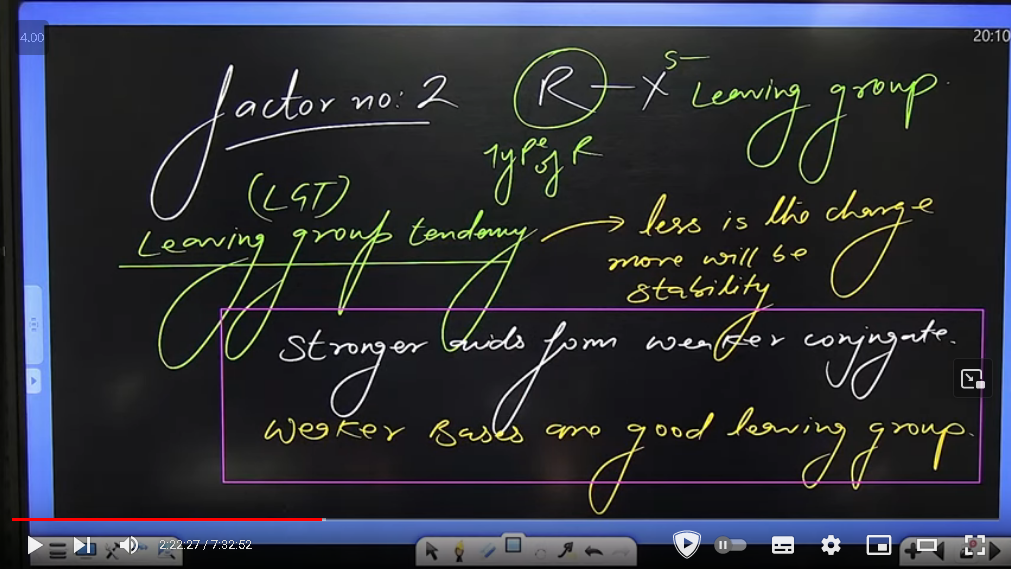 4.00
20:10
factor no: 2
R-X δ- Leaving group.
Type of R
(LGT)
Leaving group tendency → less is the charge
more will be
stability
Stronger acids form weaker conjugate.
Weaker Bases are good leaving group.
2:22:27 / 7:32:52